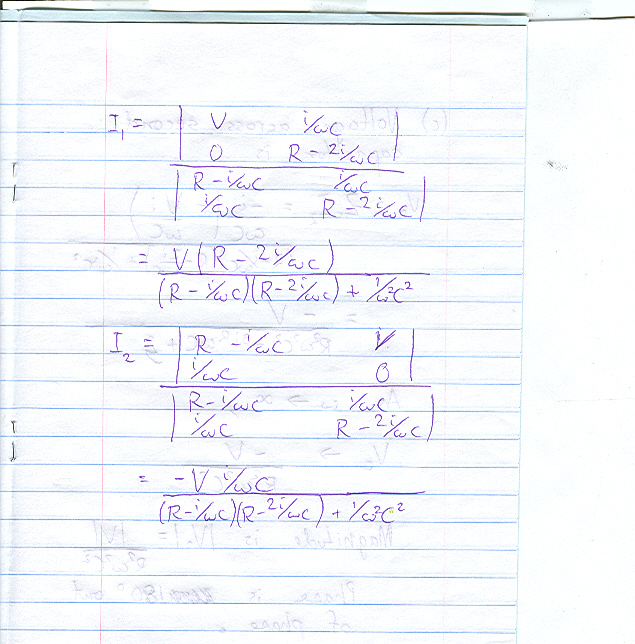 I₁ = | V i/ωC |
| 0 R - 2i/ωC |
| R - i/ωC i/ωC |
| i/ωC R - 2i/ωC |
= V(R - 2i/ωC)
(R - i/ωC)(R - 2i/ωC) + 1/ω²C²
I₂ = | R - i/ωC V |
| i/ωC 0 |
| R - i/ωC i/ωC |
| i/ωC R - 2i/ωC |
= -V i/ωC
(R - i/ωC)(R - 2i/ωC) + 1/ω²C²